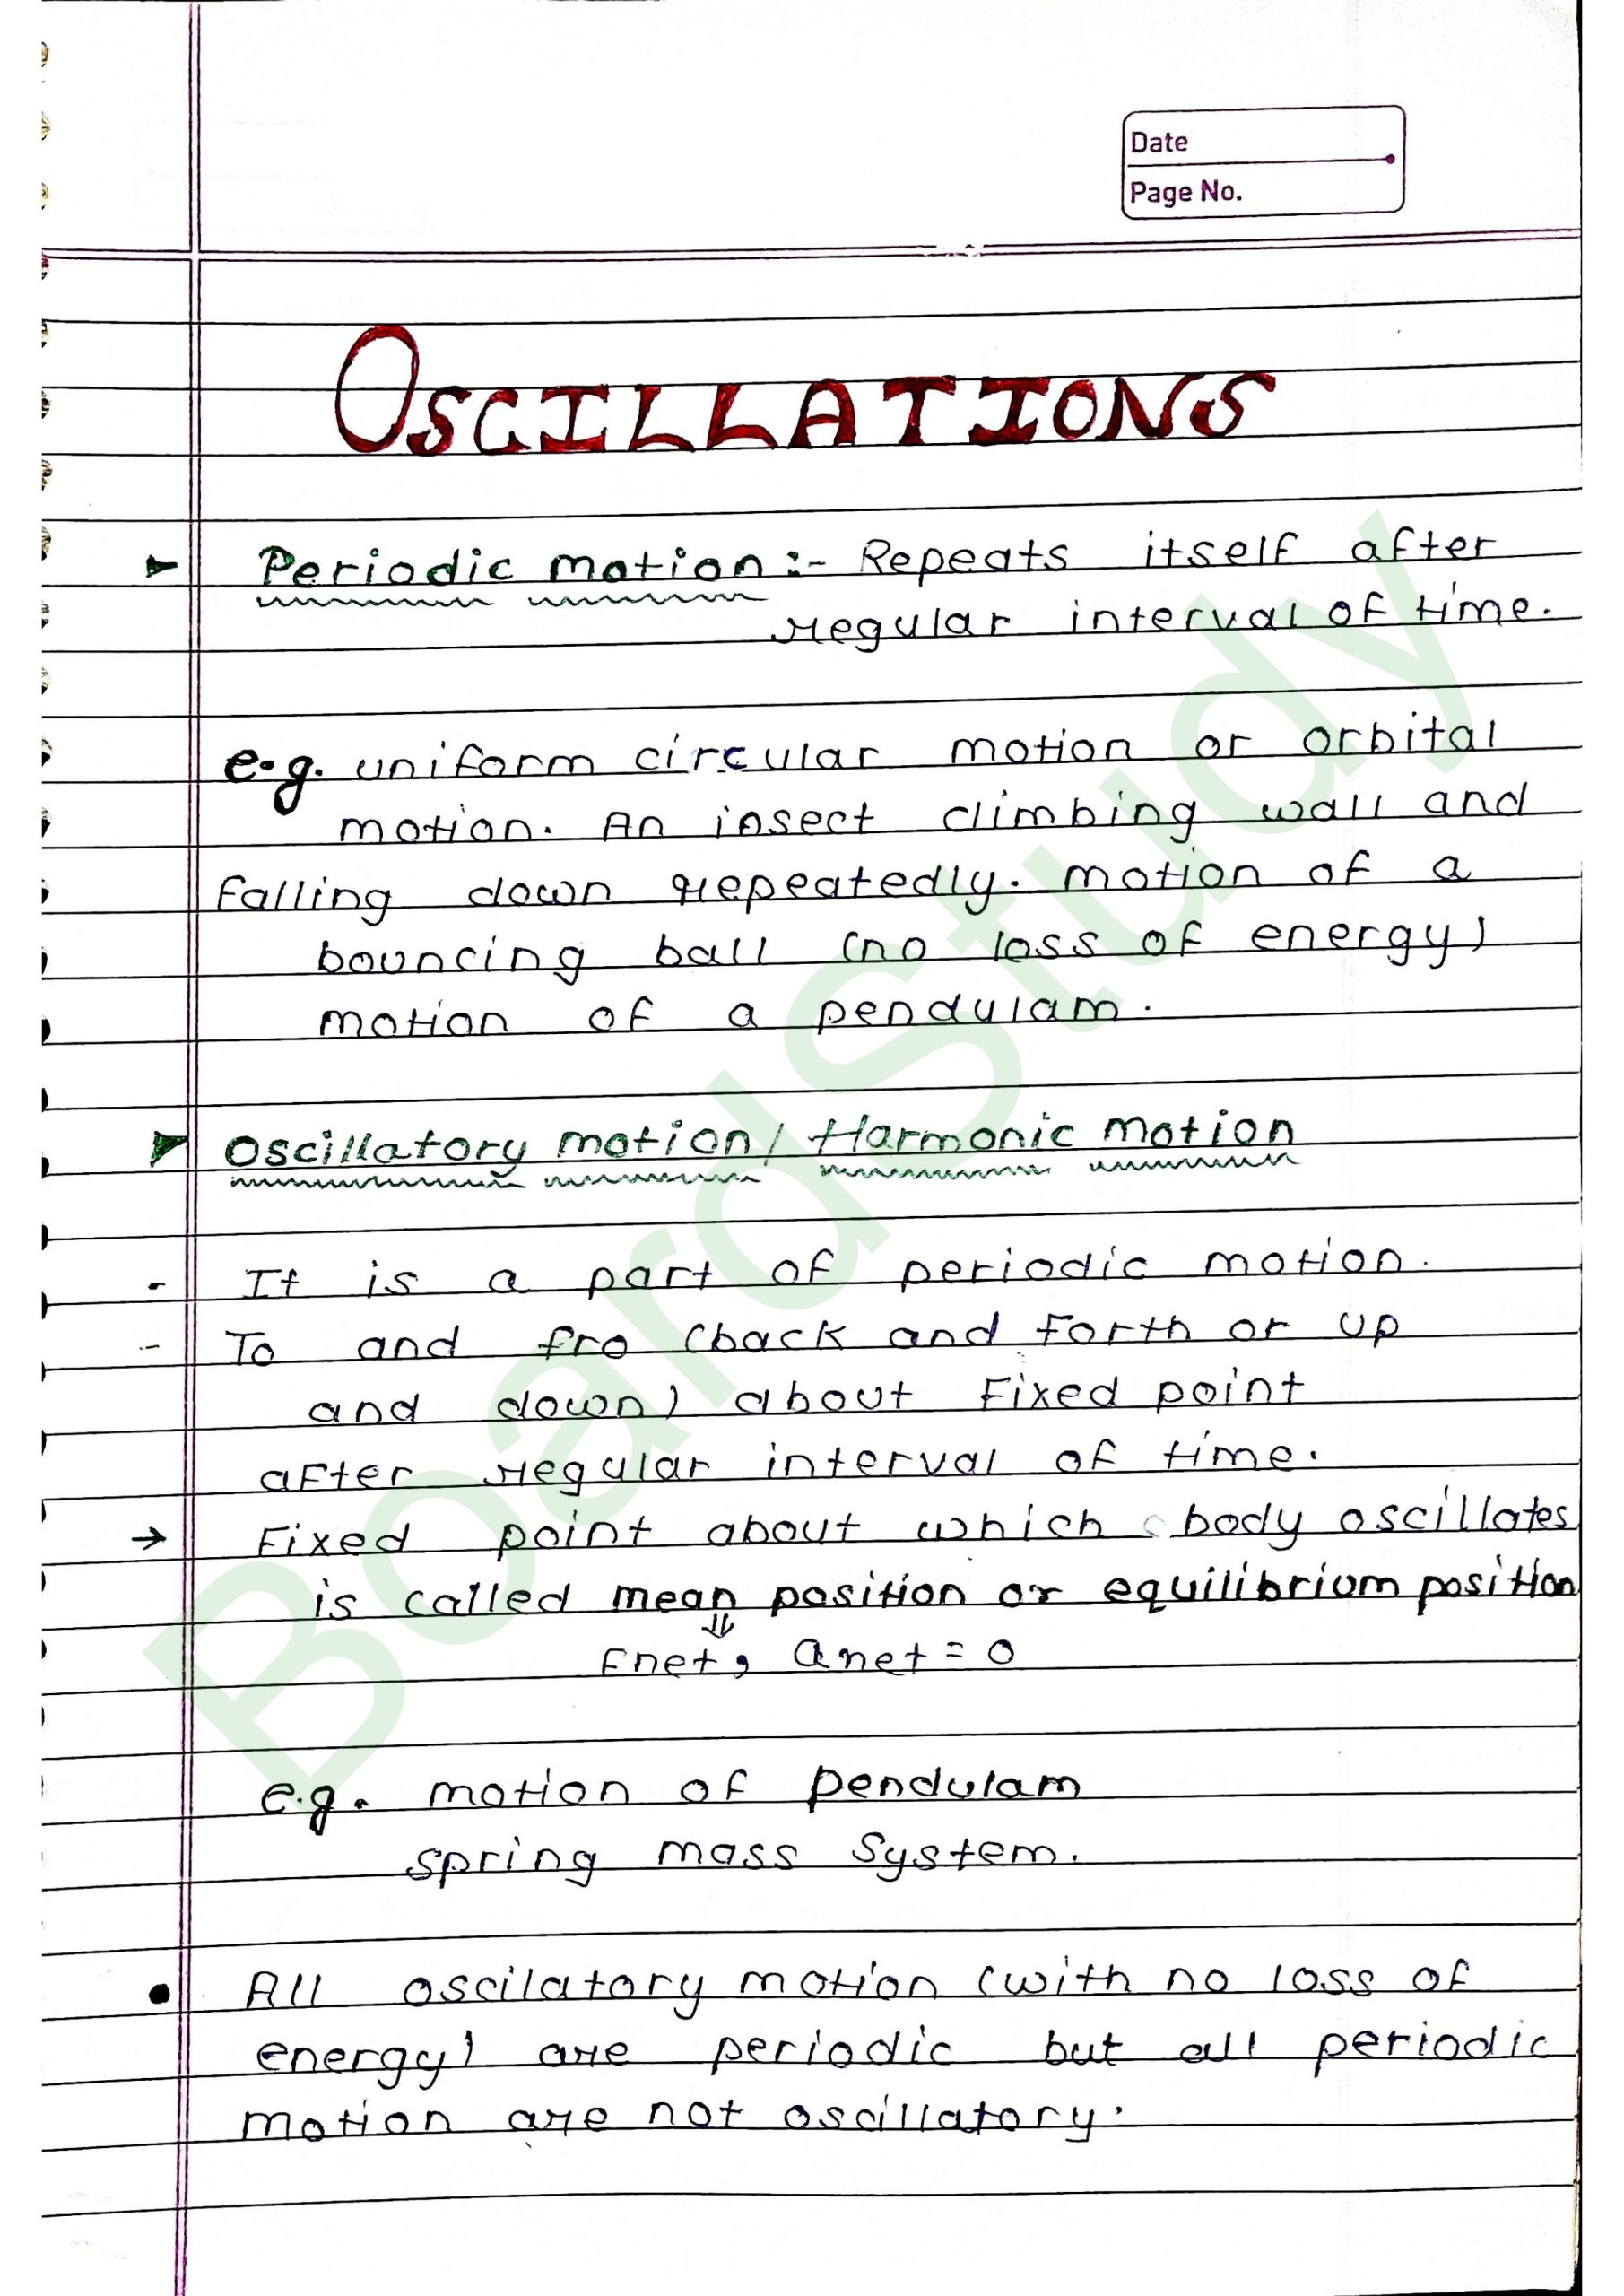 Date
Page No.
OSCILLATIONS
Periodic motion :- Repeats itself after
regular interval of time.
e.g. uniform circular motion or orbital
motion. An insect climbing wall and
falling down repeatedly. motion of a
bouncing ball (no loss of energy)
motion of a pendulam.
Oscillatory motion / Harmonic motion
- It is a part of periodic motion.
- To and fro (back and forth or up
and down) about Fixed point
after regular interval of time.
→ Fixed point about which body oscillates
is called mean position or equilibrium position
⇓
Fnet, anet = 0
e.g. motion of pendulam
spring mass system.
• All oscilatory motion (with no loss of
energy) are periodic but all periodic
motion are not oscillatory.
BoardStudy